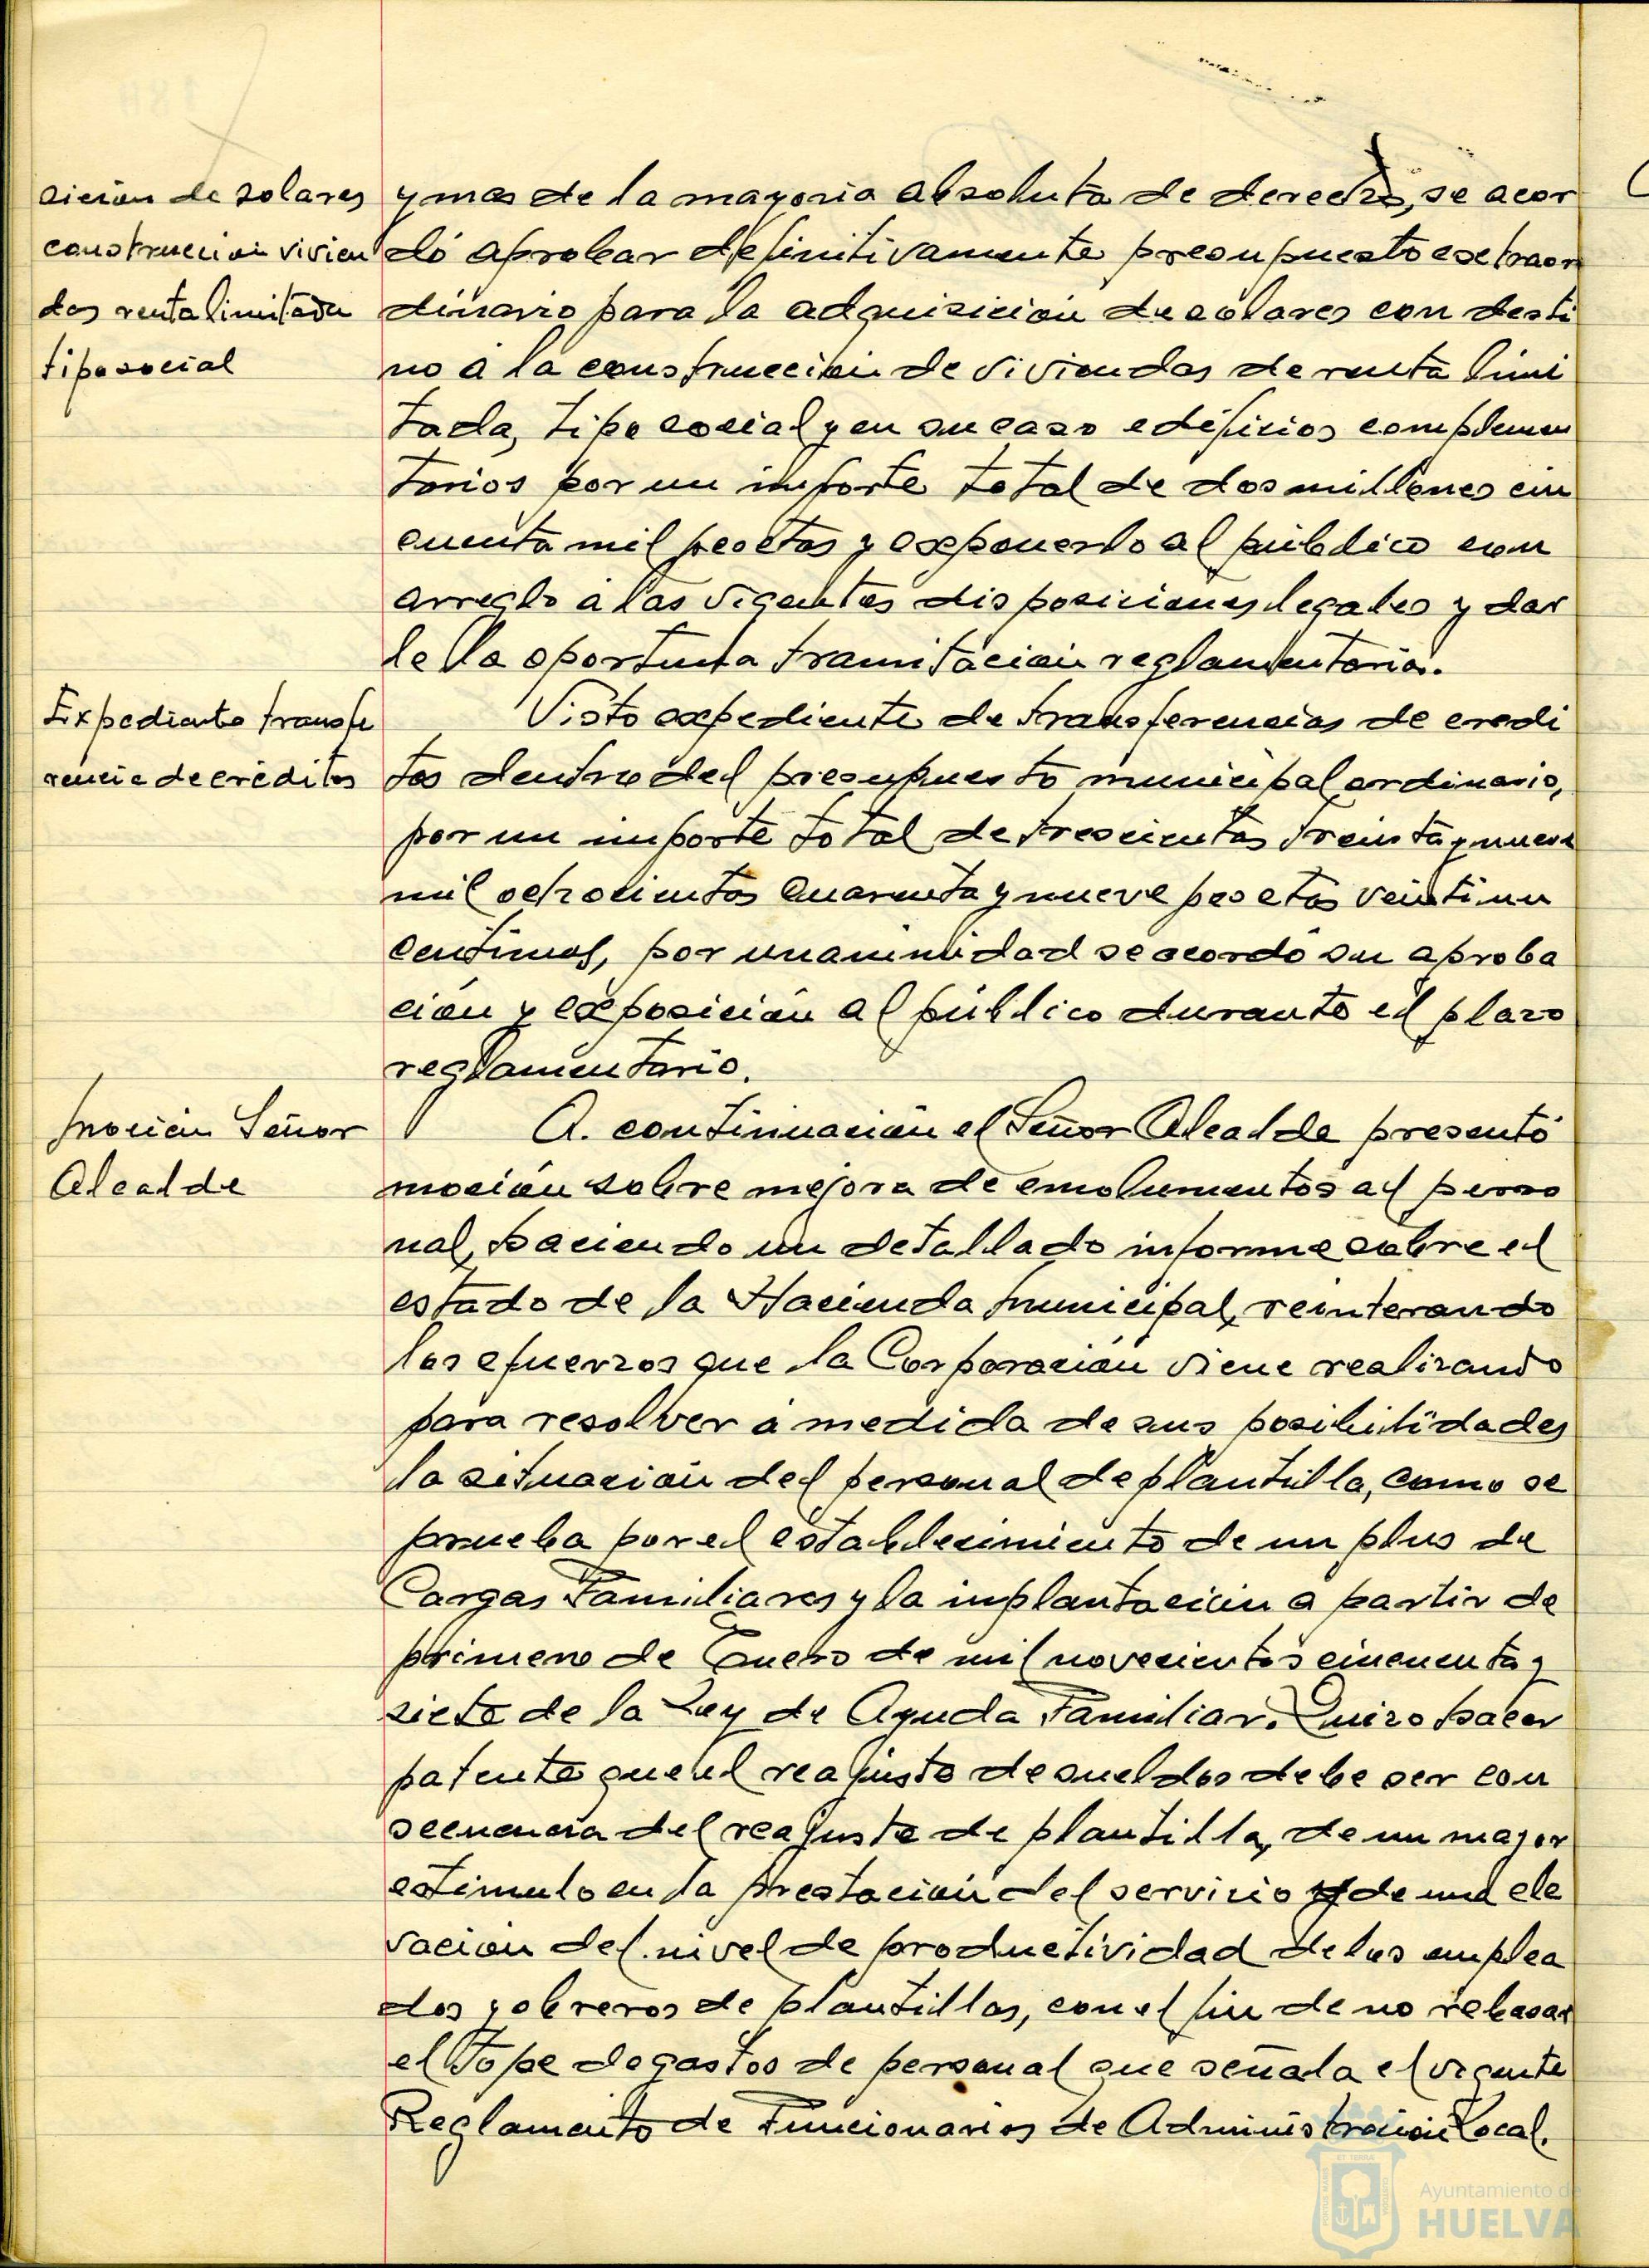 sición de solares
construcción vivien
das renta limitada
tipo social
y mas de la mayoria absoluta de derecho, se acor
dó aprobar definitivamente presupuesto extraor
dinario para la adquisición de solares con desti
no a la construcción de viviendas de renta limi
tada, tipo social y en su caso edificios complemen
tarios por un importe total de dos millones cin
cuenta mil pesetas y exponerlo al público con
arreglo a las vigentes disposiciones legales y dar
le la oportuna tramitación reglamentaria.
Expediente transfe
rencia de créditos
Visto expediente de transferencias de credi
tos dentro del presupuesto municipal ordinario,
por un importe total de trescientas treinta y nueve
mil ochocientas cuarenta y nueve pesetas veintiun
centimos, por unanimidad se acordó su aproba
ción y exposición al público durante el plazo
reglamentario.
Moción Señor
Alcalde
A continuación el Señor Alcalde presentó
moción sobre mejora de emolumentos al perso
nal, haciendo un detallado informe sobre el
estado de la Hacienda Municipal, reinterando
los efuerzos que la Corporación viene realizando
para resolver a medida de sus posibilidades
la situación del personal de plantilla, como se
prueba por el establecimiento de un plus de
Cargas Familiares y la implantación a partir de
primero de Enero de mil novecientos cincuenta y
siete de la Ley de Ayuda Familiar. Quiso hacer
patente que el reajuste de sueldos debe ser con
secuencia del reajuste de plantilla, de un mayor
estimulo en la prestación del servicio y de una ele
vación del nivel de productividad de los emplea
dos y obreros de plantillas, con el fin de no rebasar
el tope de gastos de personal que señala el vigente
Reglamento de Funcionarios de Administración Local.
Ayuntamiento de
HUELVA